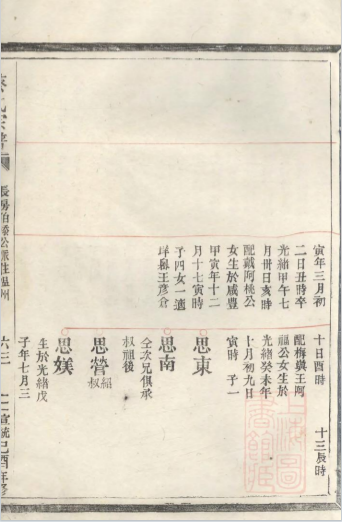 寅年三月初
二日丑時卒
光緒甲午七
月卅日亥時
配戴阿桃公
女生於咸豐
甲寅年十二
月十七寅時
子四女一適
王彥倉
十日酉時
配梅與王阿
福公女生於
光緒癸未年
十月初九日
寅時 子一
十三辰時
思東
思南
仝次兄俱承
叔祖後
思營
叔
思媄
生於光緒戊
子年七月三
六三
宣統己酉年修